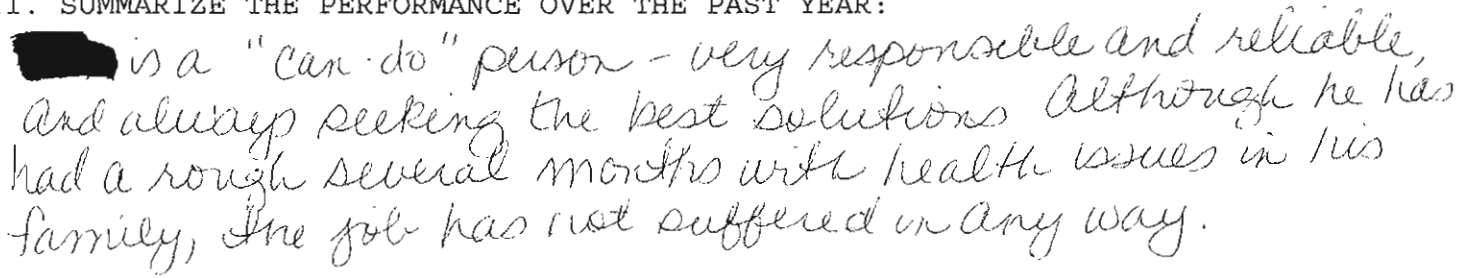 I. SUMMARIZE THE PERFORMANCE OVER THE PAST YEAR:
is a "can-do" person - very responsible and reliable,
and always seeking the best solutions Although he has
had a rough several months with health issues in his
family, the job has not suffered in any way.